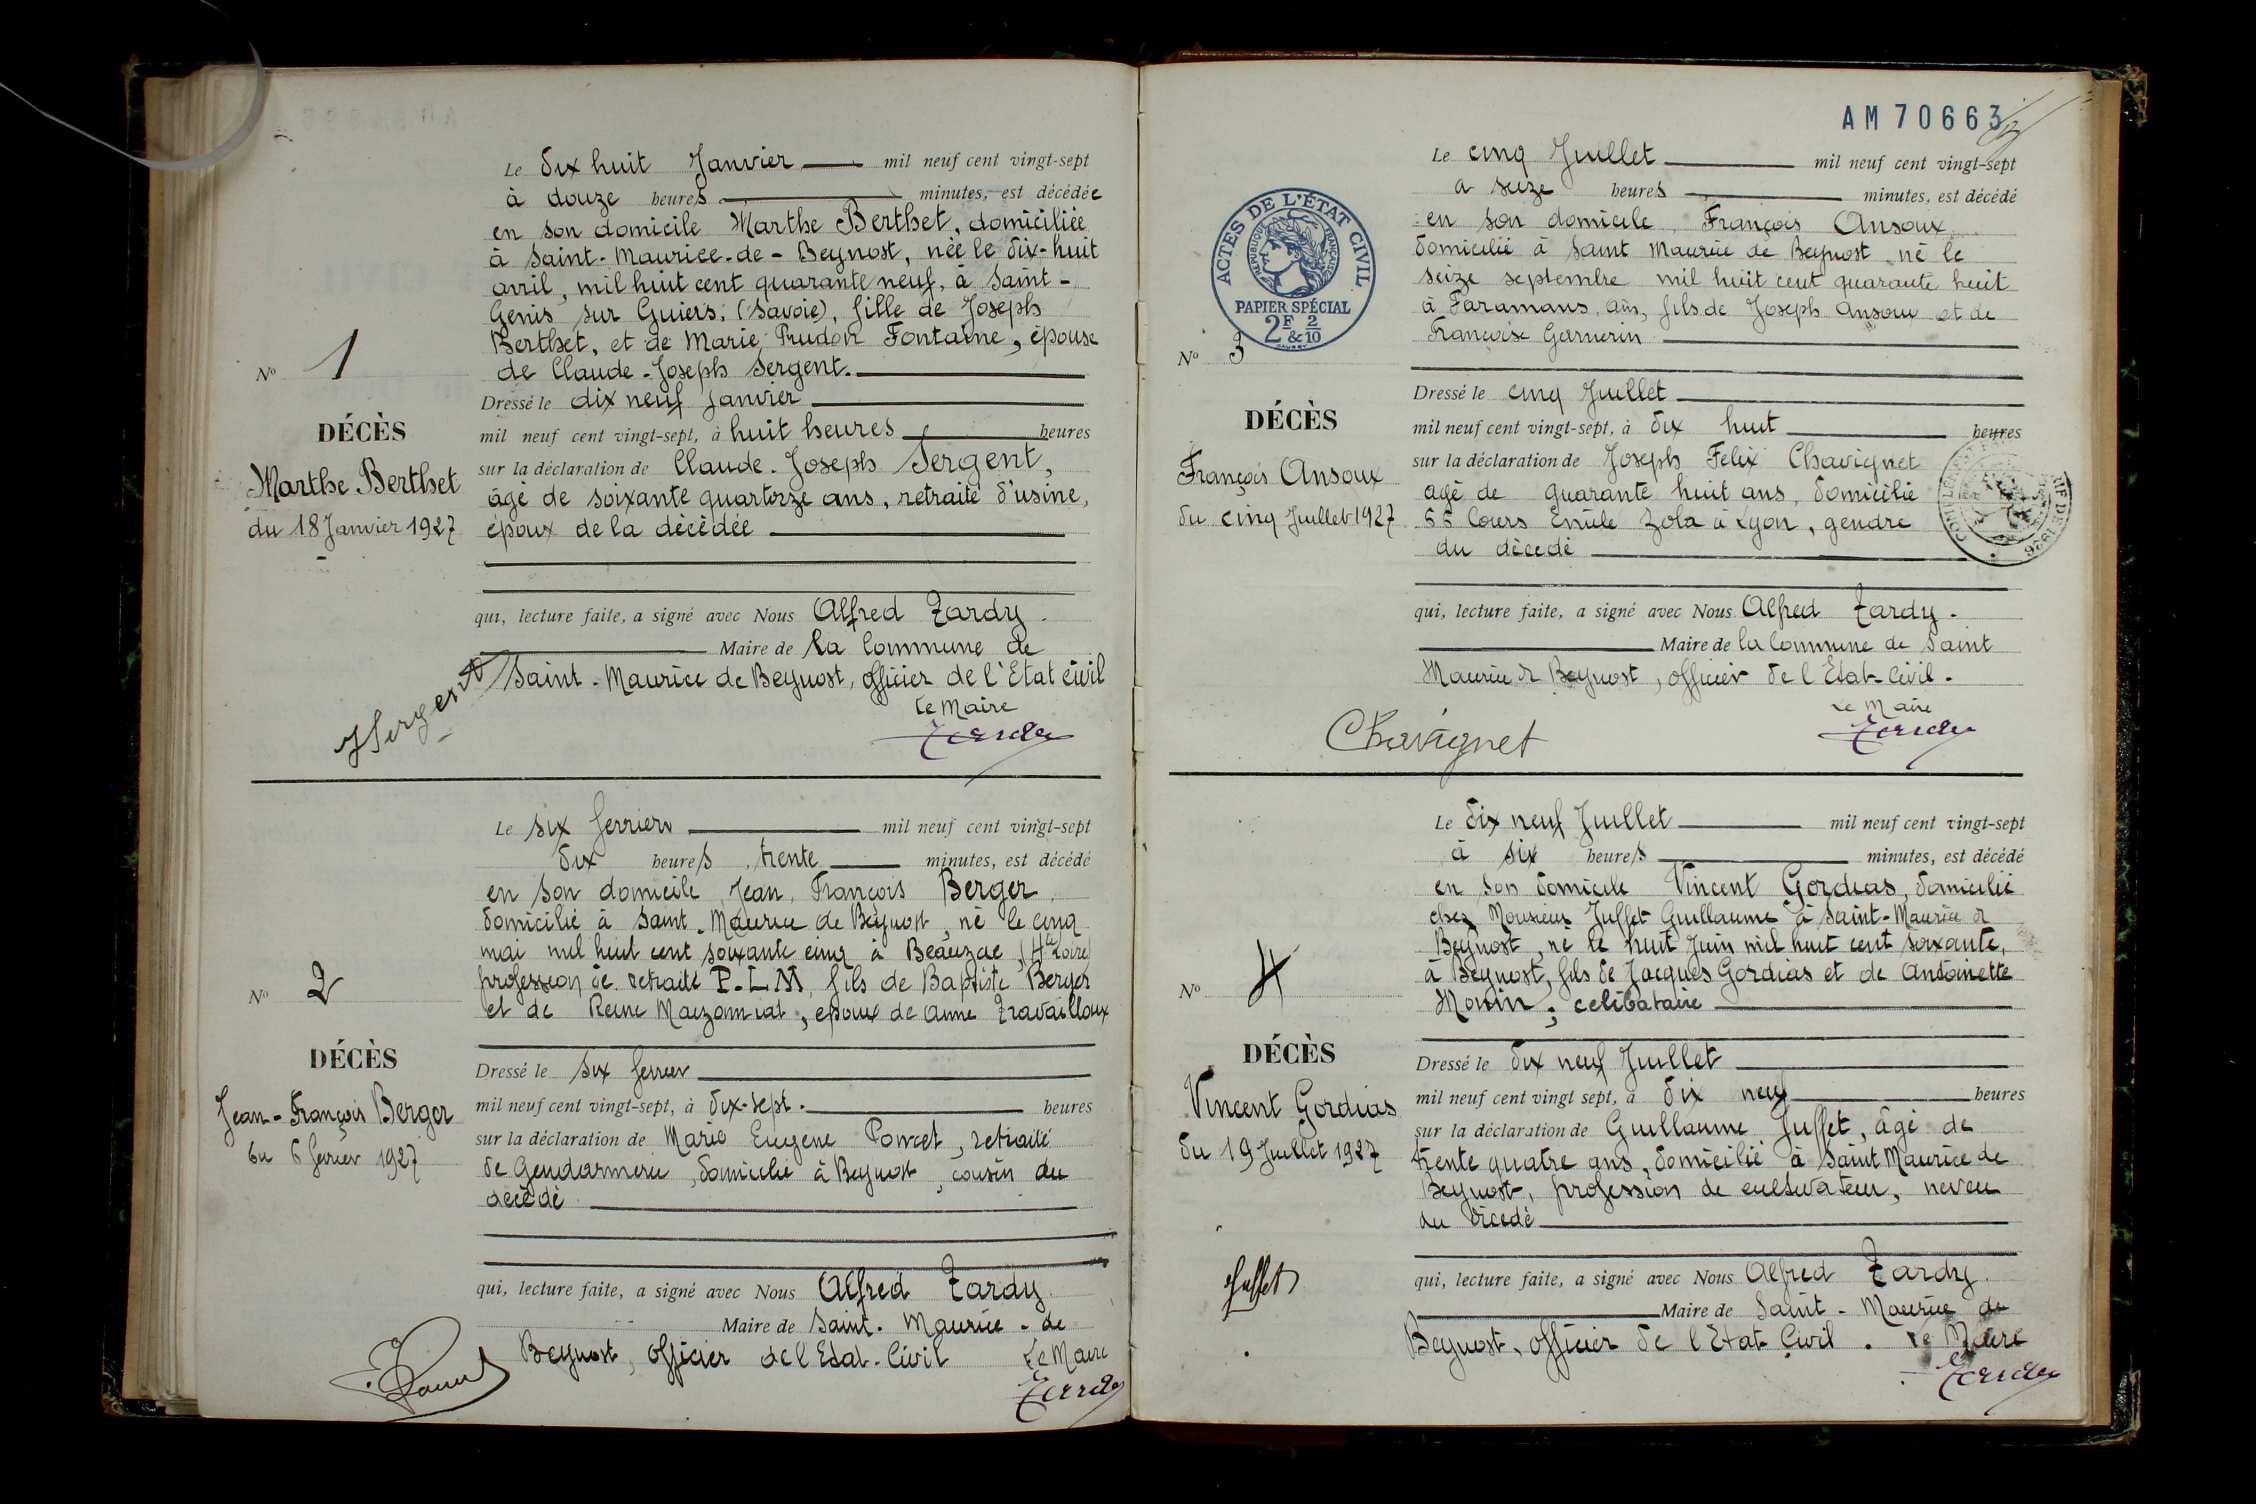 Le dix huit Janvier mil neuf cent vingt-sept
à douze heures minutes, est décédée
en son domicile Marthe Berthet, domiciliée
à Saint-Maurice-de-Beynost, née le dix-huit
avril, mil huit cent quarante neuf, à Saint-
Genis sur Guiers, (Savoie), fille de Joseph
Berthet, et de Marie Prudon Fontaine, épouse
de Claude-Joseph Sergent.
No 1
DÉCÈS
Marthe Berthet
du 18 Janvier 1927
Dressé le dix neuf Janvier
mil neuf cent vingt-sept, à huit heures heures
sur la déclaration de Claude-Joseph Sergent,
âgé de soixante quartorze ans, retraité d'usine,
époux de la décédée
qui, lecture faite, a signé avec Nous Alfred Tardy.
Maire de la Commune de
Saint-Maurice de Beynost, officier de l'Etat civil
Le Maire
JSergent
Tardy
Le six ferrier mil neuf cent vingt-sept
dix heures trente minutes, est décédé
en son domicile Jean, François Berger,
domicilié à Saint-Maurice de Beynost, né le cinq
mai mil huit cent soixante cinq à Beauzac, (Hte Loire)
profession de retraité P.L.M, fils de Baptiste Berger
et de Reine Mazonniat, epoux de Anne Travailloux
No 2
DÉCÈS
Jean-François Berger
du 6 ferrier 1927
Dressé le six ferrier
mil neuf cent vingt-sept, à dix-sept. heures
sur la déclaration de Marie Eugene Poncet, retraité
de Gendarmerie, domicilié à Beynost, cousin du
décédé
qui, lecture faite, a signé avec Nous Alfred Tardy
Maire de Saint-Maurice-de
Beynost, officier de l'Etat-Civil Le Maire
Tardy
AM 70663
ACTES DE L'ÉTAT CIVIL
RÉPUBLIQUE FRANÇAISE
PAPIER SPÉCIAL
2F & 2/10
Le cinq Juillet mil neuf cent vingt-sept
a seize heures minutes, est décédé
en son domicile François Ansoux
domicilié à Saint Maurice de Beynost né le
seize septembre mil huit cent quarante huit
à Faramans, Ain, fils de Joseph Ansoux et de
Françoise Garnerin
No 3
DÉCÈS
François Ansoux
du cinq Juillet 1927
Dressé le cinq Juillet
mil neuf cent vingt-sept, à dix huit heures
sur la déclaration de Joseph Felix Chavignet
agé de quarante huit ans, domicilié
66 Cours Emile Zola à Lyon, gendre
du décédé
qui, lecture faite, a signé avec Nous Alfred Tardy.
Maire de la Commune de Saint
Maurice de Beynost, officier de l'Etat-Civil.
Le Maire
Chavignet
Tardy
Le dix neuf Juillet mil neuf cent vingt-sept
à six heures minutes, est décédé
en son domicile Vincent Gordias, domicilié
chez Monsieur Juffet Guillaume à Saint-Maurice de
Beynost, né le huit Juin mil huit cent soixante,
à Beynost, fils de Jacques Gordias et de Antoinette
Monin; celibataire
No 4
DÉCÈS
Vincent Gordias
du 19 Juillet 1927
Dressé le dix neuf Juillet
mil neuf cent vingt sept, à dix neuf heures
sur la déclaration de Guillaume Juffet, âgé de
trente quatre ans, domicilié à Saint Maurice de
Beynost, profession de cultivateur, neveu
du décedé
Juffet
qui, lecture faite, a signé avec Nous Alfred Tardy.
Maire de Saint-Maurice de
Beynost, officier de l'Etat Civil. Le Maire
Tardy